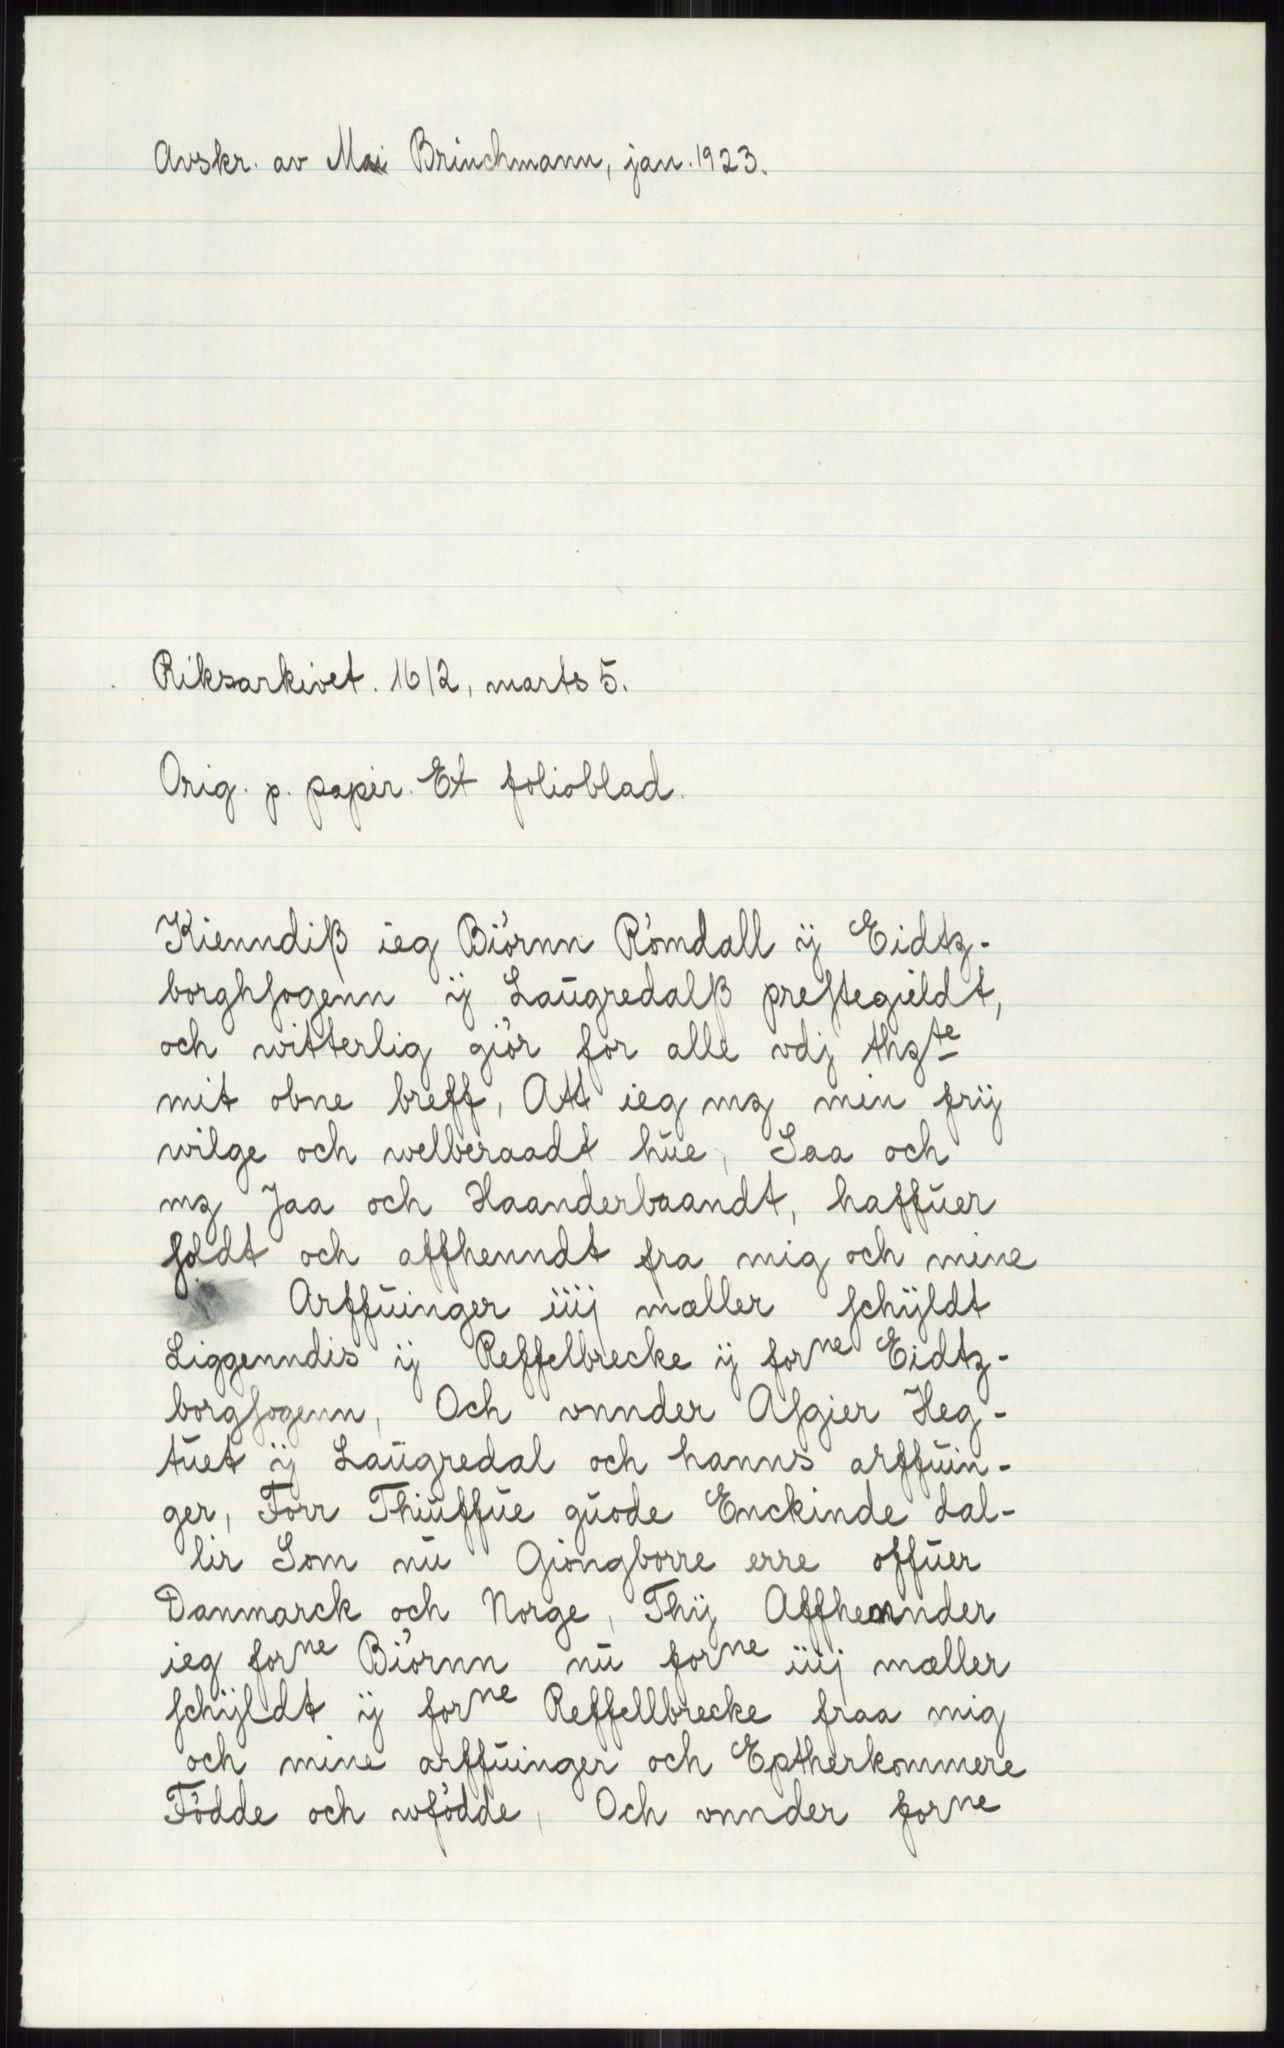 Avskr. av Mai Brinchmann, jan. 1923.
Riksarkivet. 1612, marts 5.
Orig. p. papir. Et folioblad.
Kienndiß ieg Biörnn Römdall ÿ Eidtz-
borghsogenn ÿ Laŭgredalß prestegieldt,
och witterlig giör for alle vdj thz^te
mit obne breff, Att ieg mz min frÿ
wilge och welberaadt hŭe, Saa och
mz Jaa och Haanderbaandt, haffŭer
soldt och affhenndt fra mig och mine
Arffŭinger iiij mæller schÿldt
Liggenndis ÿ Reffelbrecke ÿ for^ne Eidtz-
borgsogenn, Och vnnder Asgier Heg-
tŭet ÿ Laŭgredal och hanns arffŭin-
ger, Förr Thiŭffŭe gŭode Enckinde dal-
lir Som nŭ Giöngborre erre offŭer
Danmarck och Norge, Thÿ Affhennder
ieg for^ne Biörnn nŭ for^ne iiij mæller
schÿldt ÿ for^ne Reffellbrecke fraa mig
och mine arffŭinger och Eptherkommere
Födde och wfödde, Och vnnder for^ne